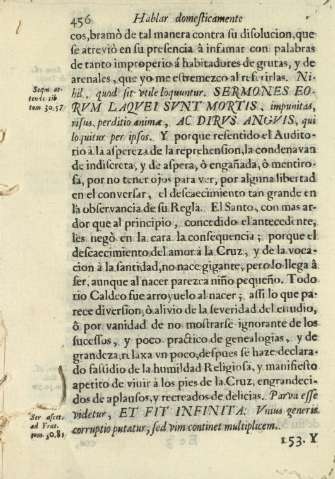 456 Hablar domesticamente
cos, bramò de tal manera contra su disolucion, que
se atreviò en su presencia à infamar con palabras
de tanto improperio à habitadores de grutas, y de
arenales, que yo me estremezco al referirlas. Ni-
hil, quod sit vtile loquuntur. SERMONES EO-
RVM LAQVEI SVNT MORTIS, impunitas,
risus, perditio animæ, AC DIRVS ANGVIS, qui
loquitur per ipsos. Y porque resentido el Audito-
rio à la aspereza de la reprehension, la condenavan
de indiscreta, y de aspera, ò engañada, ò mentiro-
sa, por no tener ojos para ver, por alguna libertad
en el conversar, el descaecimiento tan grande en
la observancia de su Regla. El Santo, con mas ar-
dor que al principio, concedido el antecedente,
les negò en la cara la consequencia; porque el
descaecimiento del amor à la Cruz, y de la voca-
cion à la santidad, no nace gigante, pero lo llega à
ser, aunque al nacer parezca niño pequeño. Todo
rio Caldeo fue arroyuelo al nacer; assi lo que pa-
rece diversion, ò alivio de la severidad del estudio,
ò por vanidad de no mostrarse ignorante de los
sucessos, y poco practico de genealogias, y de
grandeza, relaxa vn poco, despues se haze declara-
do fastidio de la humildad Religiosa, y manifiesto
apetito de vivir à los pies de la Cruz, engrandeci-
dos de aplausos, y recreados de delicias. Parva esse
videtur, ET FIT INFINITA: Vnius generis
corruptio putatur, sed vim continet multiplicem.
153. Y
tom 30.57
Ser ascet.
ad Frat.
tom 30.81